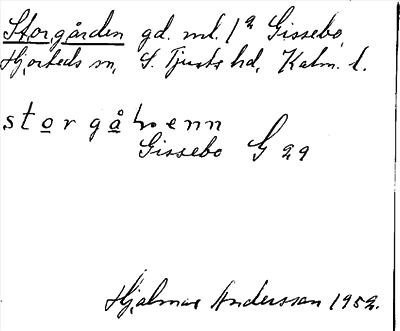 Storgården gd. ml. 1ª Gissebo,
Hjorteds sn, S. Tjusts hd, Kalm. l.
storgåɳenn
Gissebo G 29
Hjalmar Andersson 1952.